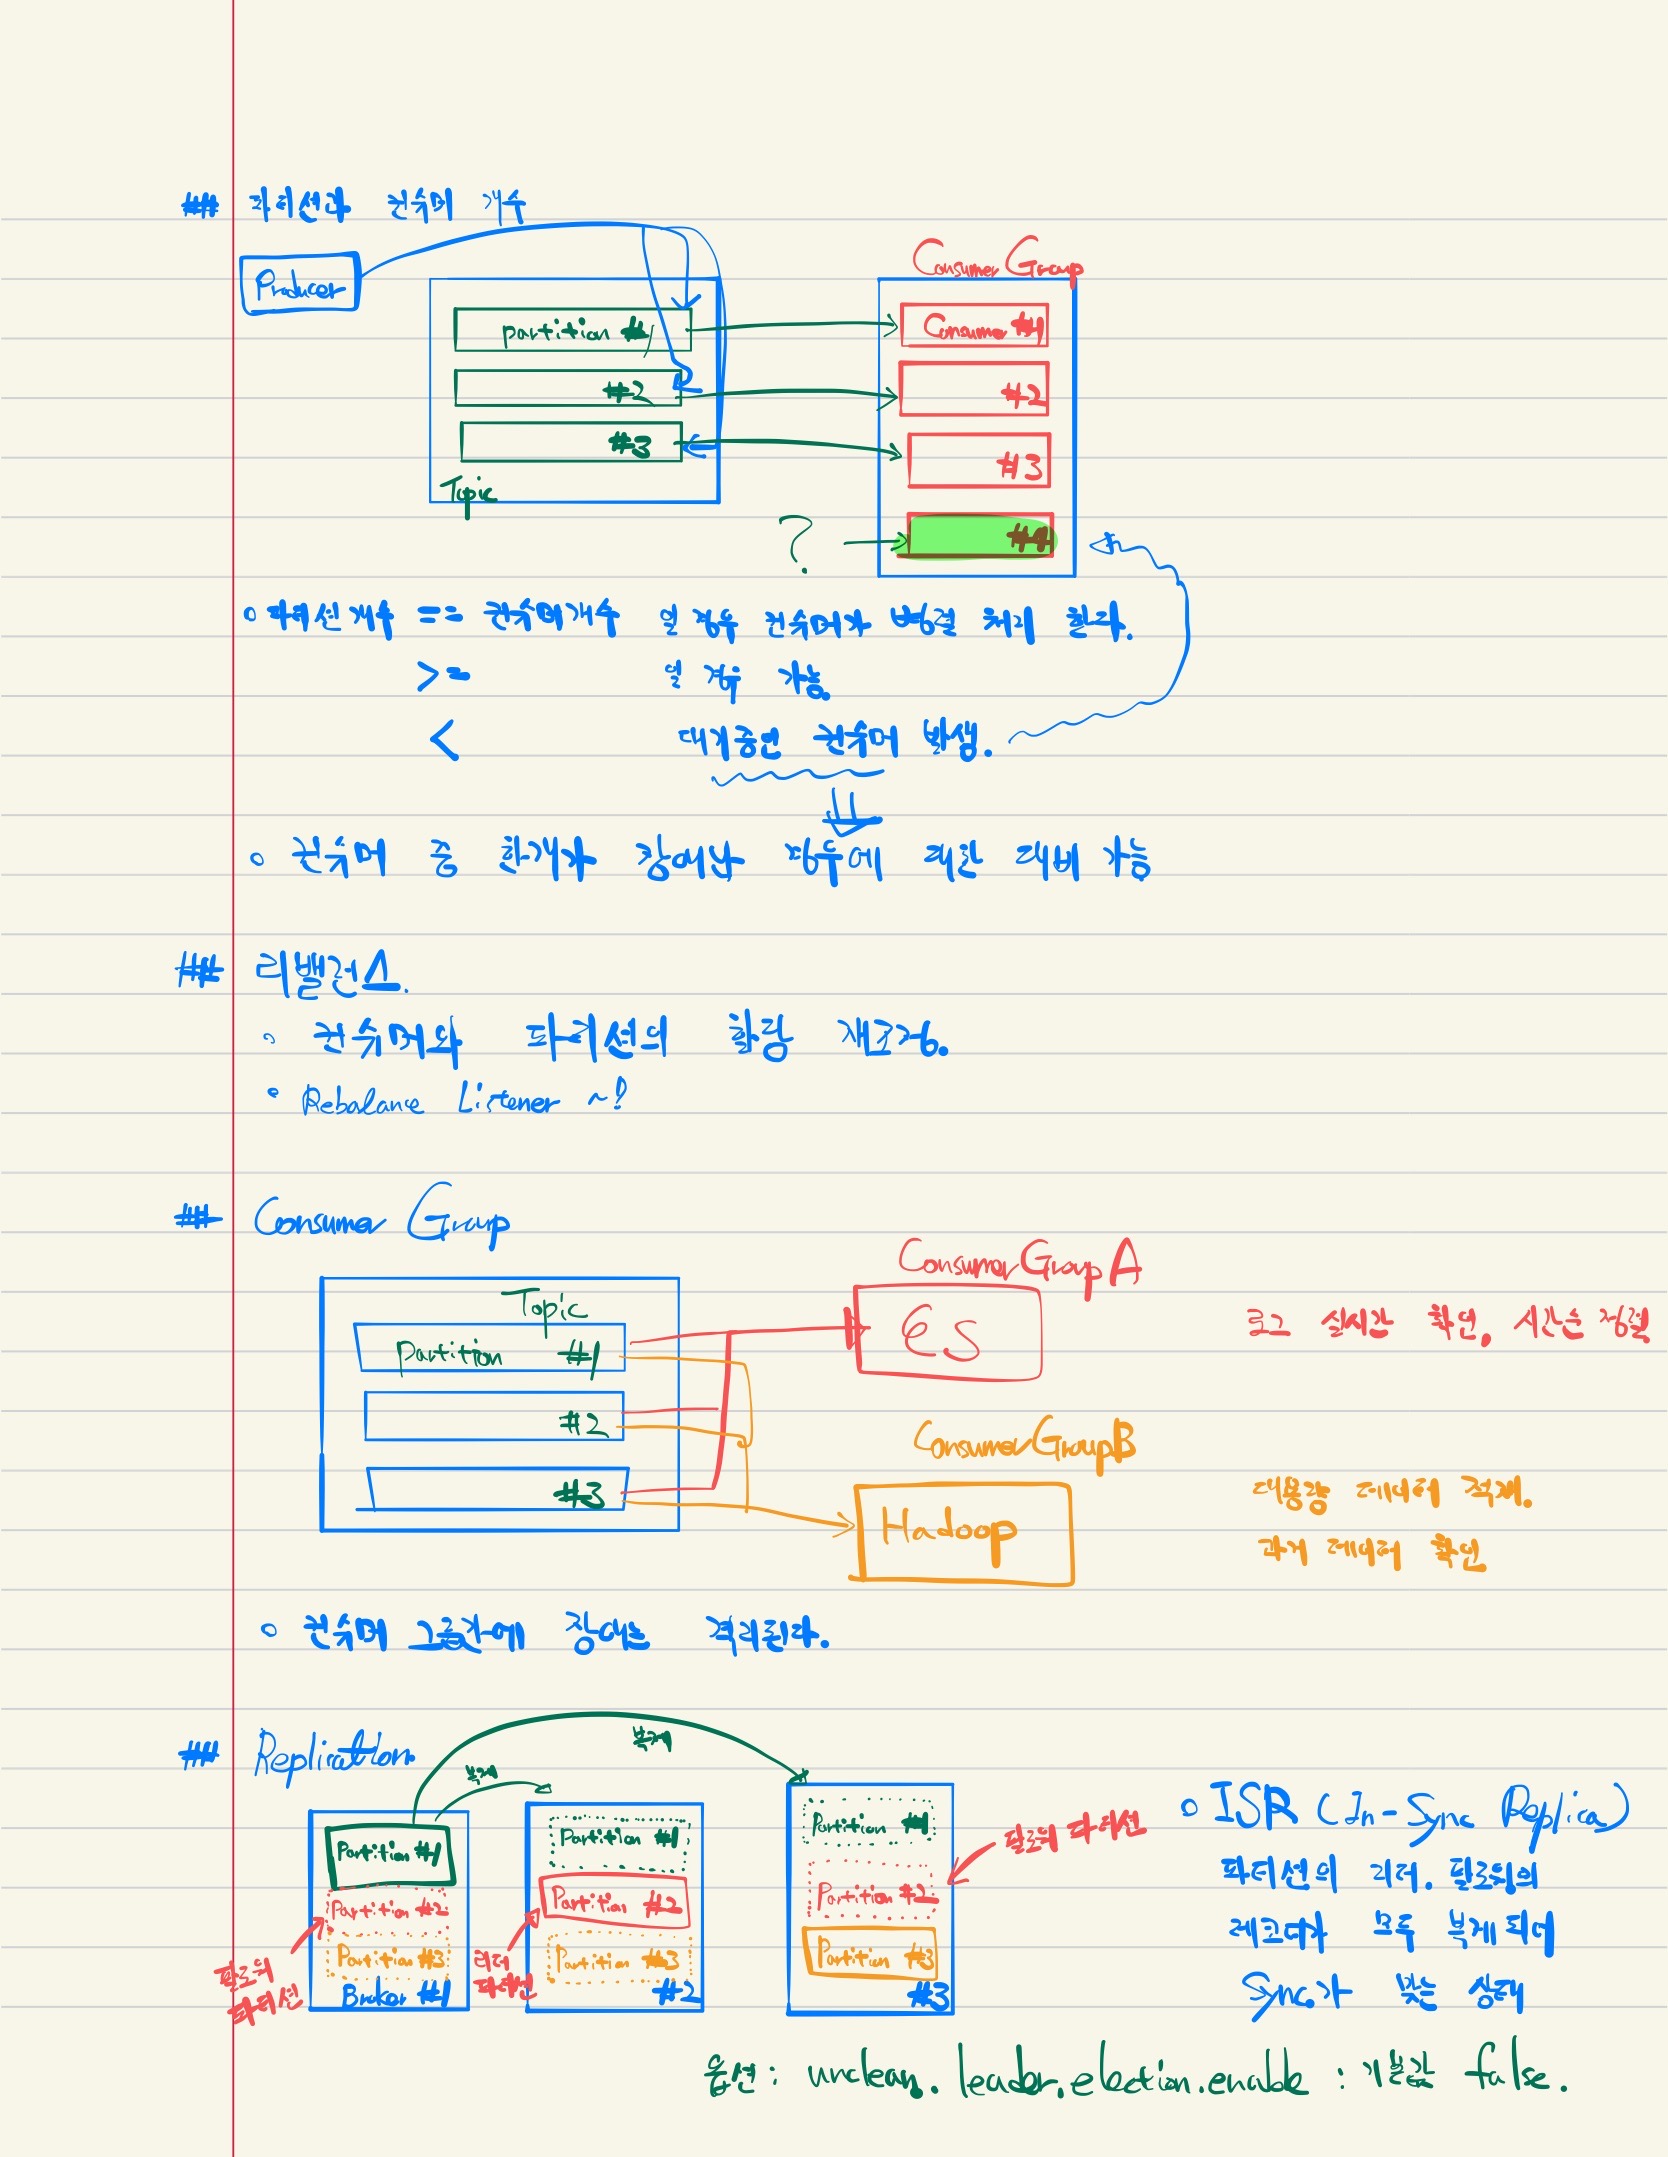 ## 파티션과 컨슈머 개수
Producer
Consumer Group
partition #1
Consumer #1
#2
#2
#3
#3
Topic
?
#4
◦ 파티션 개수 == 컨슈머 개수 일 경우 컨슈머가 병렬 처리 한다.
>= 일 경우 가능.
< 대기중인 컨슈머 발생.
◦ 컨슈머 중 한개가 장애난 경우에 대한 대비 가능
## 리밸런스.
◦ 컨슈머와 파티션의 할당 재조정.
◦ Rebalance Listener ~!
## Consumer Group
Consumer Group A
Topic
ES
로그 실시간 확인, 시간순 정렬
Partition #1
#2
Consumer Group B
#3
Hadoop
대용량 데이터 적재.
과거 데이터 확인
◦ 컨슈머 그룹간에 장애는 격리된다.
## Replication.
복제
복제
Partition #1
Partition #2
Partition #3
Broker #1
팔로워
파티션
Partition #1
Partition #2
Partition #3
#2
리더
파티션
Partition #1
Partition #2
Partition #3
#3
팔로워 파티션
◦ ISR (In-Sync Replica)
파티션의 리더. 팔로워의
레코더가 모두 복제되어
Sync.가 맞는 상태
옵션: unclean.leader.election.enable : 기본값 false.